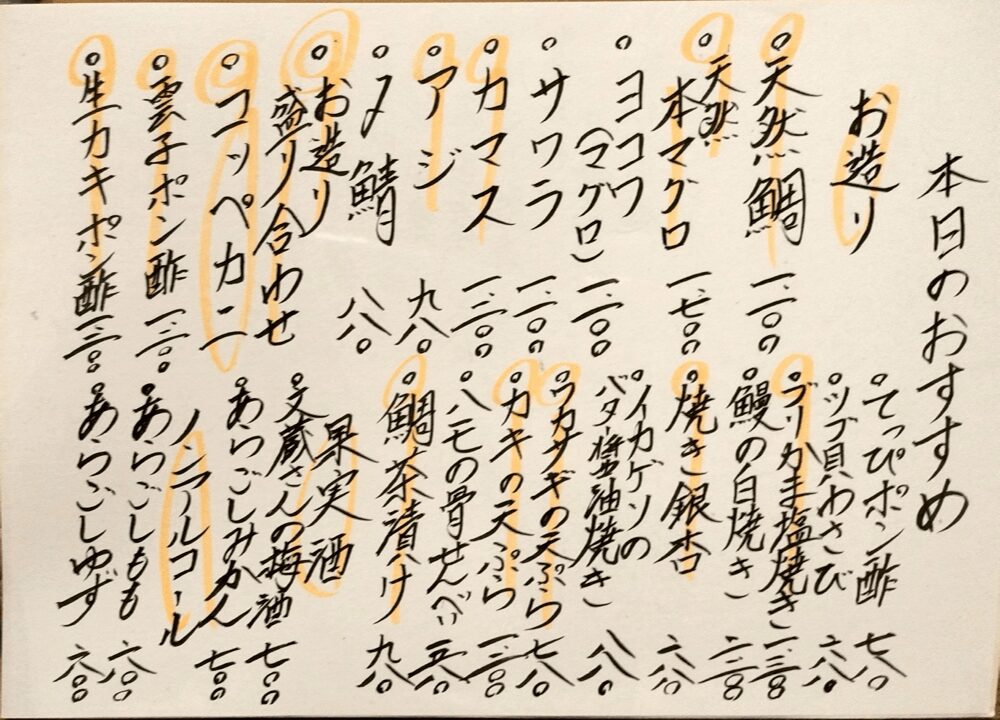 本日のおすすめ
お造り
○天然鯛 一、二〇〇
○天然
本マグロ 一、七〇〇
○ヨコワ
(マグロ) 一、二〇〇
○サワラ 一、二〇〇
○カマス 一、二〇〇
○アジ 九八〇
○〆鯖 八八〇
○お造り
盛り合わせ
○コッペカニ
○雲子ポン酢 一、三〇〇
○生カキポン酢 一、三〇〇
○てっぴポン酢 七八〇
○ツブ貝わさび 六八〇
○ブリかま塩焼き 一、三八〇
○鰻の白焼き 二、三八〇
○焼き銀杏 六八〇
○イカゲソの
バタ醤油焼き 八八〇
○ワカサギの天ぷら 七八〇
○カキの天ぷら 一、三〇〇
○ハモの骨せんべい 五八〇
○鯛茶漬け 九八〇
果実酒
○文蔵さんの梅酒 七〇〇
○あらごしみかん 七〇〇
ノンアルコール
○あらごしもも 六〇〇
○あらごしゆず 六〇〇